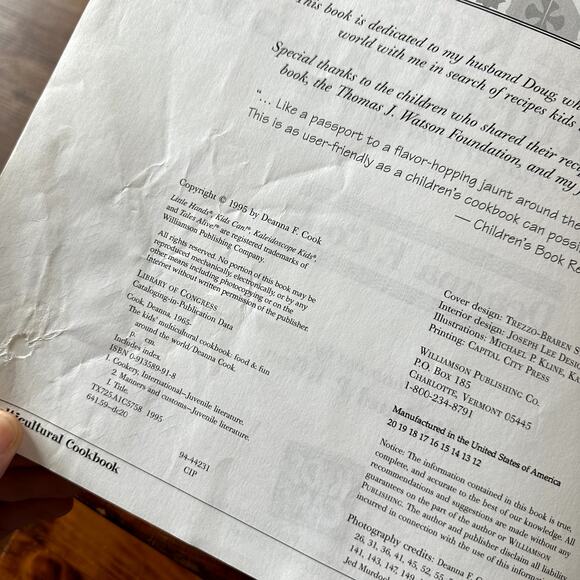 This book is dedicated to my husband Doug, wh
world with me in search of recipes kids
Special thanks to the children who shared their reci
book, the Thomas J. Watson Foundation, and my f
"... Like a passport to a flavor-hopping jaunt around the
This is as user-friendly as a children's cookbook can possi
— Children's Book Re
Copyright © 1995 by Deanna F. Cook
Little Hands®, Kids Can!®, Kaleidoscope Kids®,
and Tales Alive!® are registered trademarks of
Williamson Publishing Company.
All rights reserved. No portion of this book may be
reproduced mechanically, electronically, or by any
other means including photocopying or on the
Internet without written permission of the publisher.
LIBRARY OF CONGRESS
Cataloging-in-Publication Data
Cook, Deanna, 1965-
The kids' multicultural cookbook: food & fun
around the world/Deanna Cook.
p. cm.
Includes index.
ISBN 0-913589-91-8
1. Cookery, International–Juvenile literature.
2. Manners and customs–Juvenile literature.
1. Title.
TX725.A1C5758 1995
641.59–dc20
94-44231
CIP
Cover design: TREZZO-BRAREN S
Interior design: JOSEPH LEE DESIG
Illustrations: MICHAEL P. KLINE, KA
Printing: CAPITAL CITY PRESS
WILLIAMSON PUBLISHING CO.
P.O. BOX 185
CHARLOTTE, VERMONT 05445
1-800-234-8791
Manufactured in the United States of America
20 19 18 17 16 15 14 13 12
Notice: The information contained in this book is true,
complete, and accurate to the best of our knowledge. All
recommendations and suggestions are made without any
guarantees on the part of the author or WILLIAMSON
PUBLISHING. The author and publisher disclaim all liability
incurred in connection with the use of this information.
Photography credits: Deanna F.
26, 31, 36, 41, 45, 52, 55,
141, 143, 147, 149,
Jed Murdoch
lticultural Cookbook